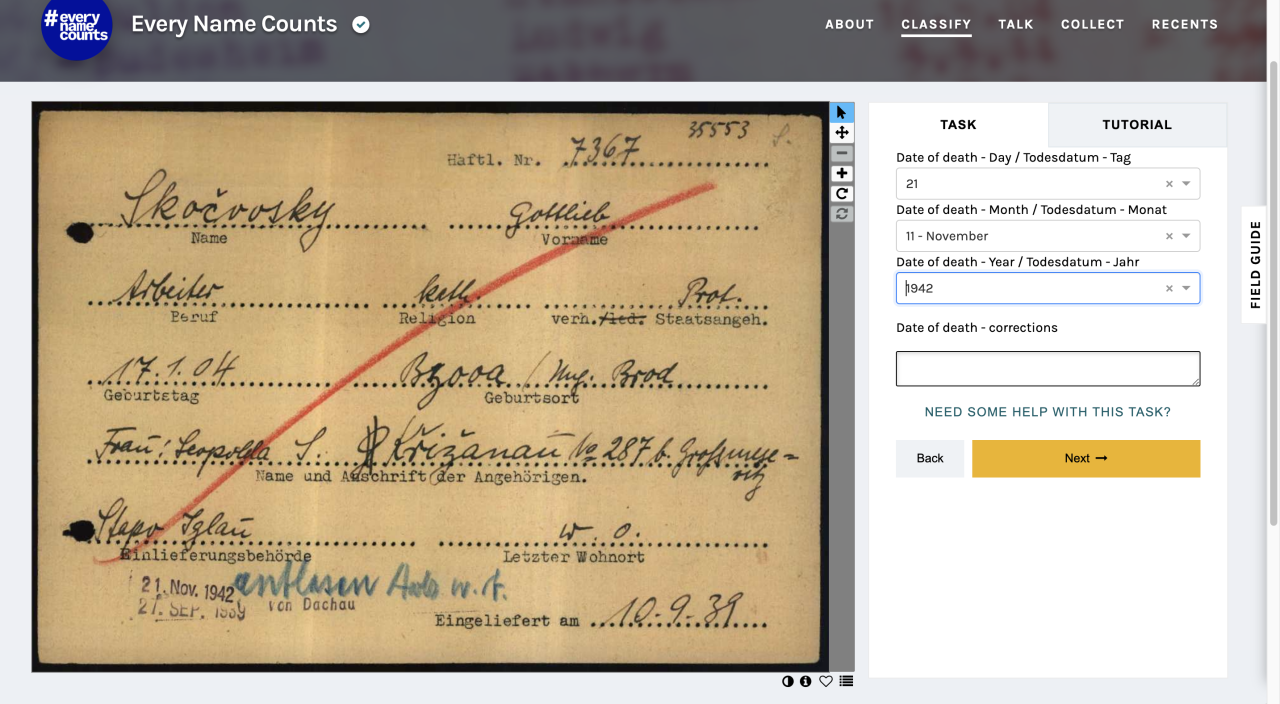 #every
name
counts
Every Name Counts
ABOUT CLASSIFY TALK COLLECT RECENTS
35553 S.
Häftl. Nr. 7367
Skočvosky Gottlieb
Name Vorname
Arbeiter kath. Prot.
Beruf Religion verh./led. Staatsangeh.
17.1.04 Bzova / Ung. Brod
Geburtstag Geburtsort
Frau: Leopolda S. Křižanau No 287 b. Grossmese=
ritz
Name und Anschrift der Angehörigen.
Stapo Iglau w. o.
Einlieferungsbehörde Letzter Wohnort
21. Nov. 1942 entlassen
27. SEP. 1939 von Dachau
Eingeliefert am 10.9.39
TASK TUTORIAL
Date of death - Day / Todesdatum - Tag
21
Date of death - Month / Todesdatum - Monat
11 - November
Date of death - Year / Todesdatum - Jahr
1942
Date of death - corrections
NEED SOME HELP WITH THIS TASK?
Back Next →
FIELD GUIDE